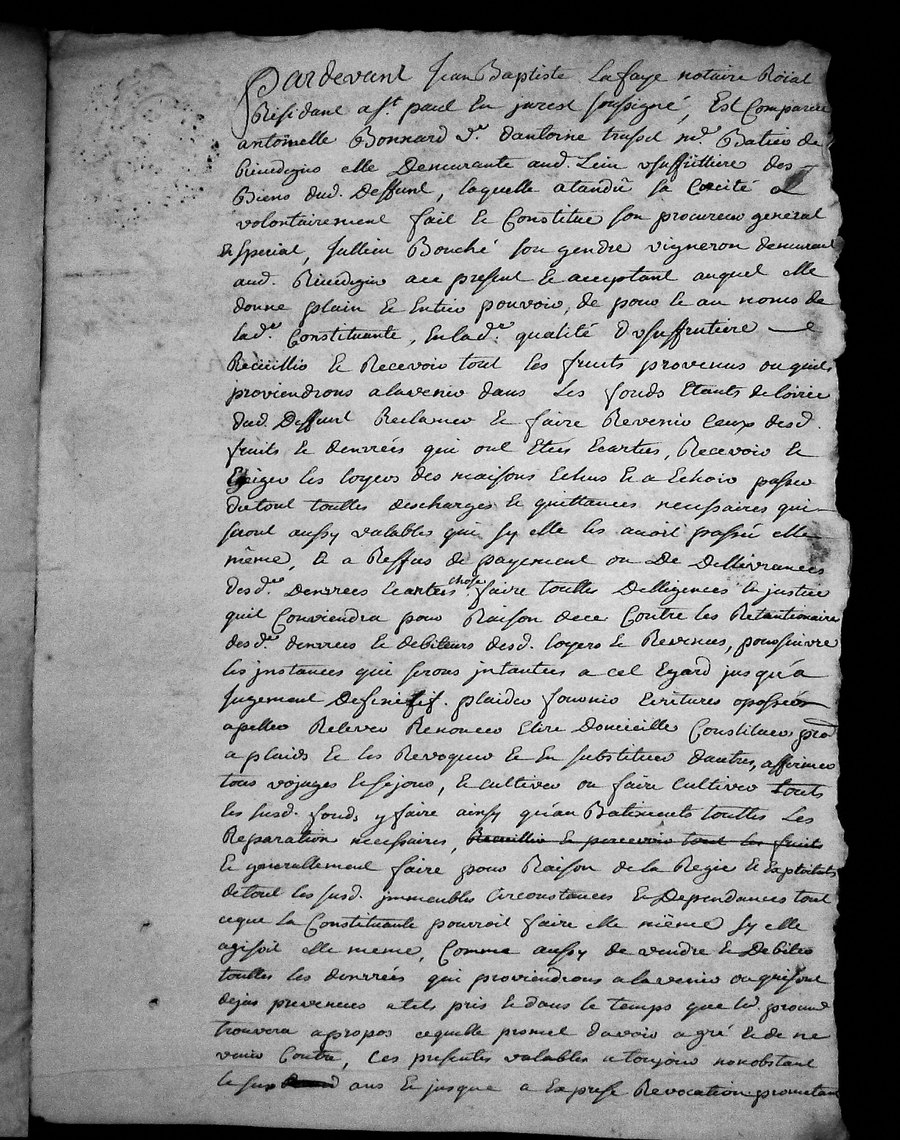 Pardevant Jean Baptiste Lafaye notaire Roïal
Résidant a St. paul En jarest soussigné, Est Comparüe
antoinette Bonnard ve. d'antoine md. Batier de
Rivedigier elle Demeurante aud. Lieu usuffruttiere des
Biens dud. Deffunt, laquelle atandû sa Cécité a
volontairement fait & Constitue son procureur general
& special, Jullien Bouché son gendre vigneron demeurant
aud. ace present & acceptant auquel elle
donne plain & Entier pouvoir, de pour & au noms de
lade. Constituante, En lade. qualité d'usuffrutiere
Recüeillir & Recevoir tout les fruits provenus ou quils
proviendrons alavenir dans les fonds Etants de loirie
dud. Deffunt Reclamer & faire Revenir Ceux desd.
fruits & denrées qui ont Etés Ecartés, Recevoir &
Exiger les loyers des maisons Echus & a Echoir passer
du tout touttes descharges & quittances necessaires qui
seront aussy valables que sy elle les avoit passé elle
même, & a Reffus de payement ou De Dellivrances
desd. denrees Ecartées chose faire touttes Delligences En justice
quil Conviendra pour Raison dece Contre les Retantionaires
desde. denrees & debiteurs desd. loyers & Revenus, poursuivre
les jnstances qui serons jntantées a cet Egard jusqu'a
Jugement Deffinitif. plaider fournir Ecritures oposser
apeller Relever Renoncer Elire Domicille Constituer
a plaids & les Revoquer & En substituer dautres, affirmer
tous voyages & sejours, & cultiver ou faire Cultiver touts
les susd. fonds y faire ainsy qu'au Batiments touttes les
Reparation necessaires, Recueillir & percevoir tout les fruits
& generallement faire pour Raison de la Regie & Exploitats
detout les susd. jmmeubles Circonstances & Dependances tout
ceque la Constituante pourroit faire elle même sy elle
agisoit elle meme, Comme aussy de vendre & Debiter
touttes les denrrées qui proviendrons alavenir ou qui sont
dejas provenues atels pris & dans le temps que led.
trouvera apropos cequelle promet d'avoir agré & de ne
venir Contra, Ces presentes valables atoujour nonobstant
le sur ans & jusque a Expresse Revocation promettant